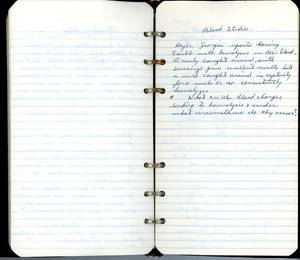 Blood Studies
Boyd, Georgia reports having
trouble with hemolysis in deer blood.
A newly caught animal, with
succinyl gives excellent results but
a wild caught animal in captivity
for a week or so consistently
hemolyzes
* What are the blood changes
leading to hemolysis & under
what circumstances do they occur?